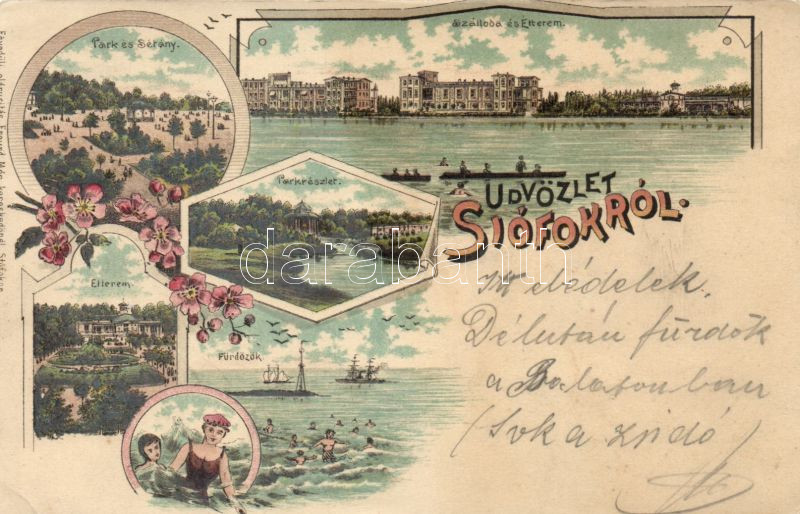 Park és Sétány.
Szálloda és Étterem.
Parkrészlet.
ÜDVÖZLET
SIÓFOKRÓL.
Étterem.
Fürdőzők
darabanth
Itt ebédelek.
Délután fürdök
a Balatonban
(Sok a zsidó)